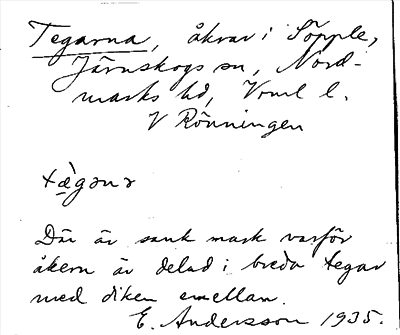 Tegarna, åkrar i Söpple,
Järnskogs sn, Nord-
marks hd, Vrml l.
V Rönningen
tæ̀gənɐ
Där är sank mark varför
åkern är delad i breda tegar
med diken emellan.
E. Andersson 1935.